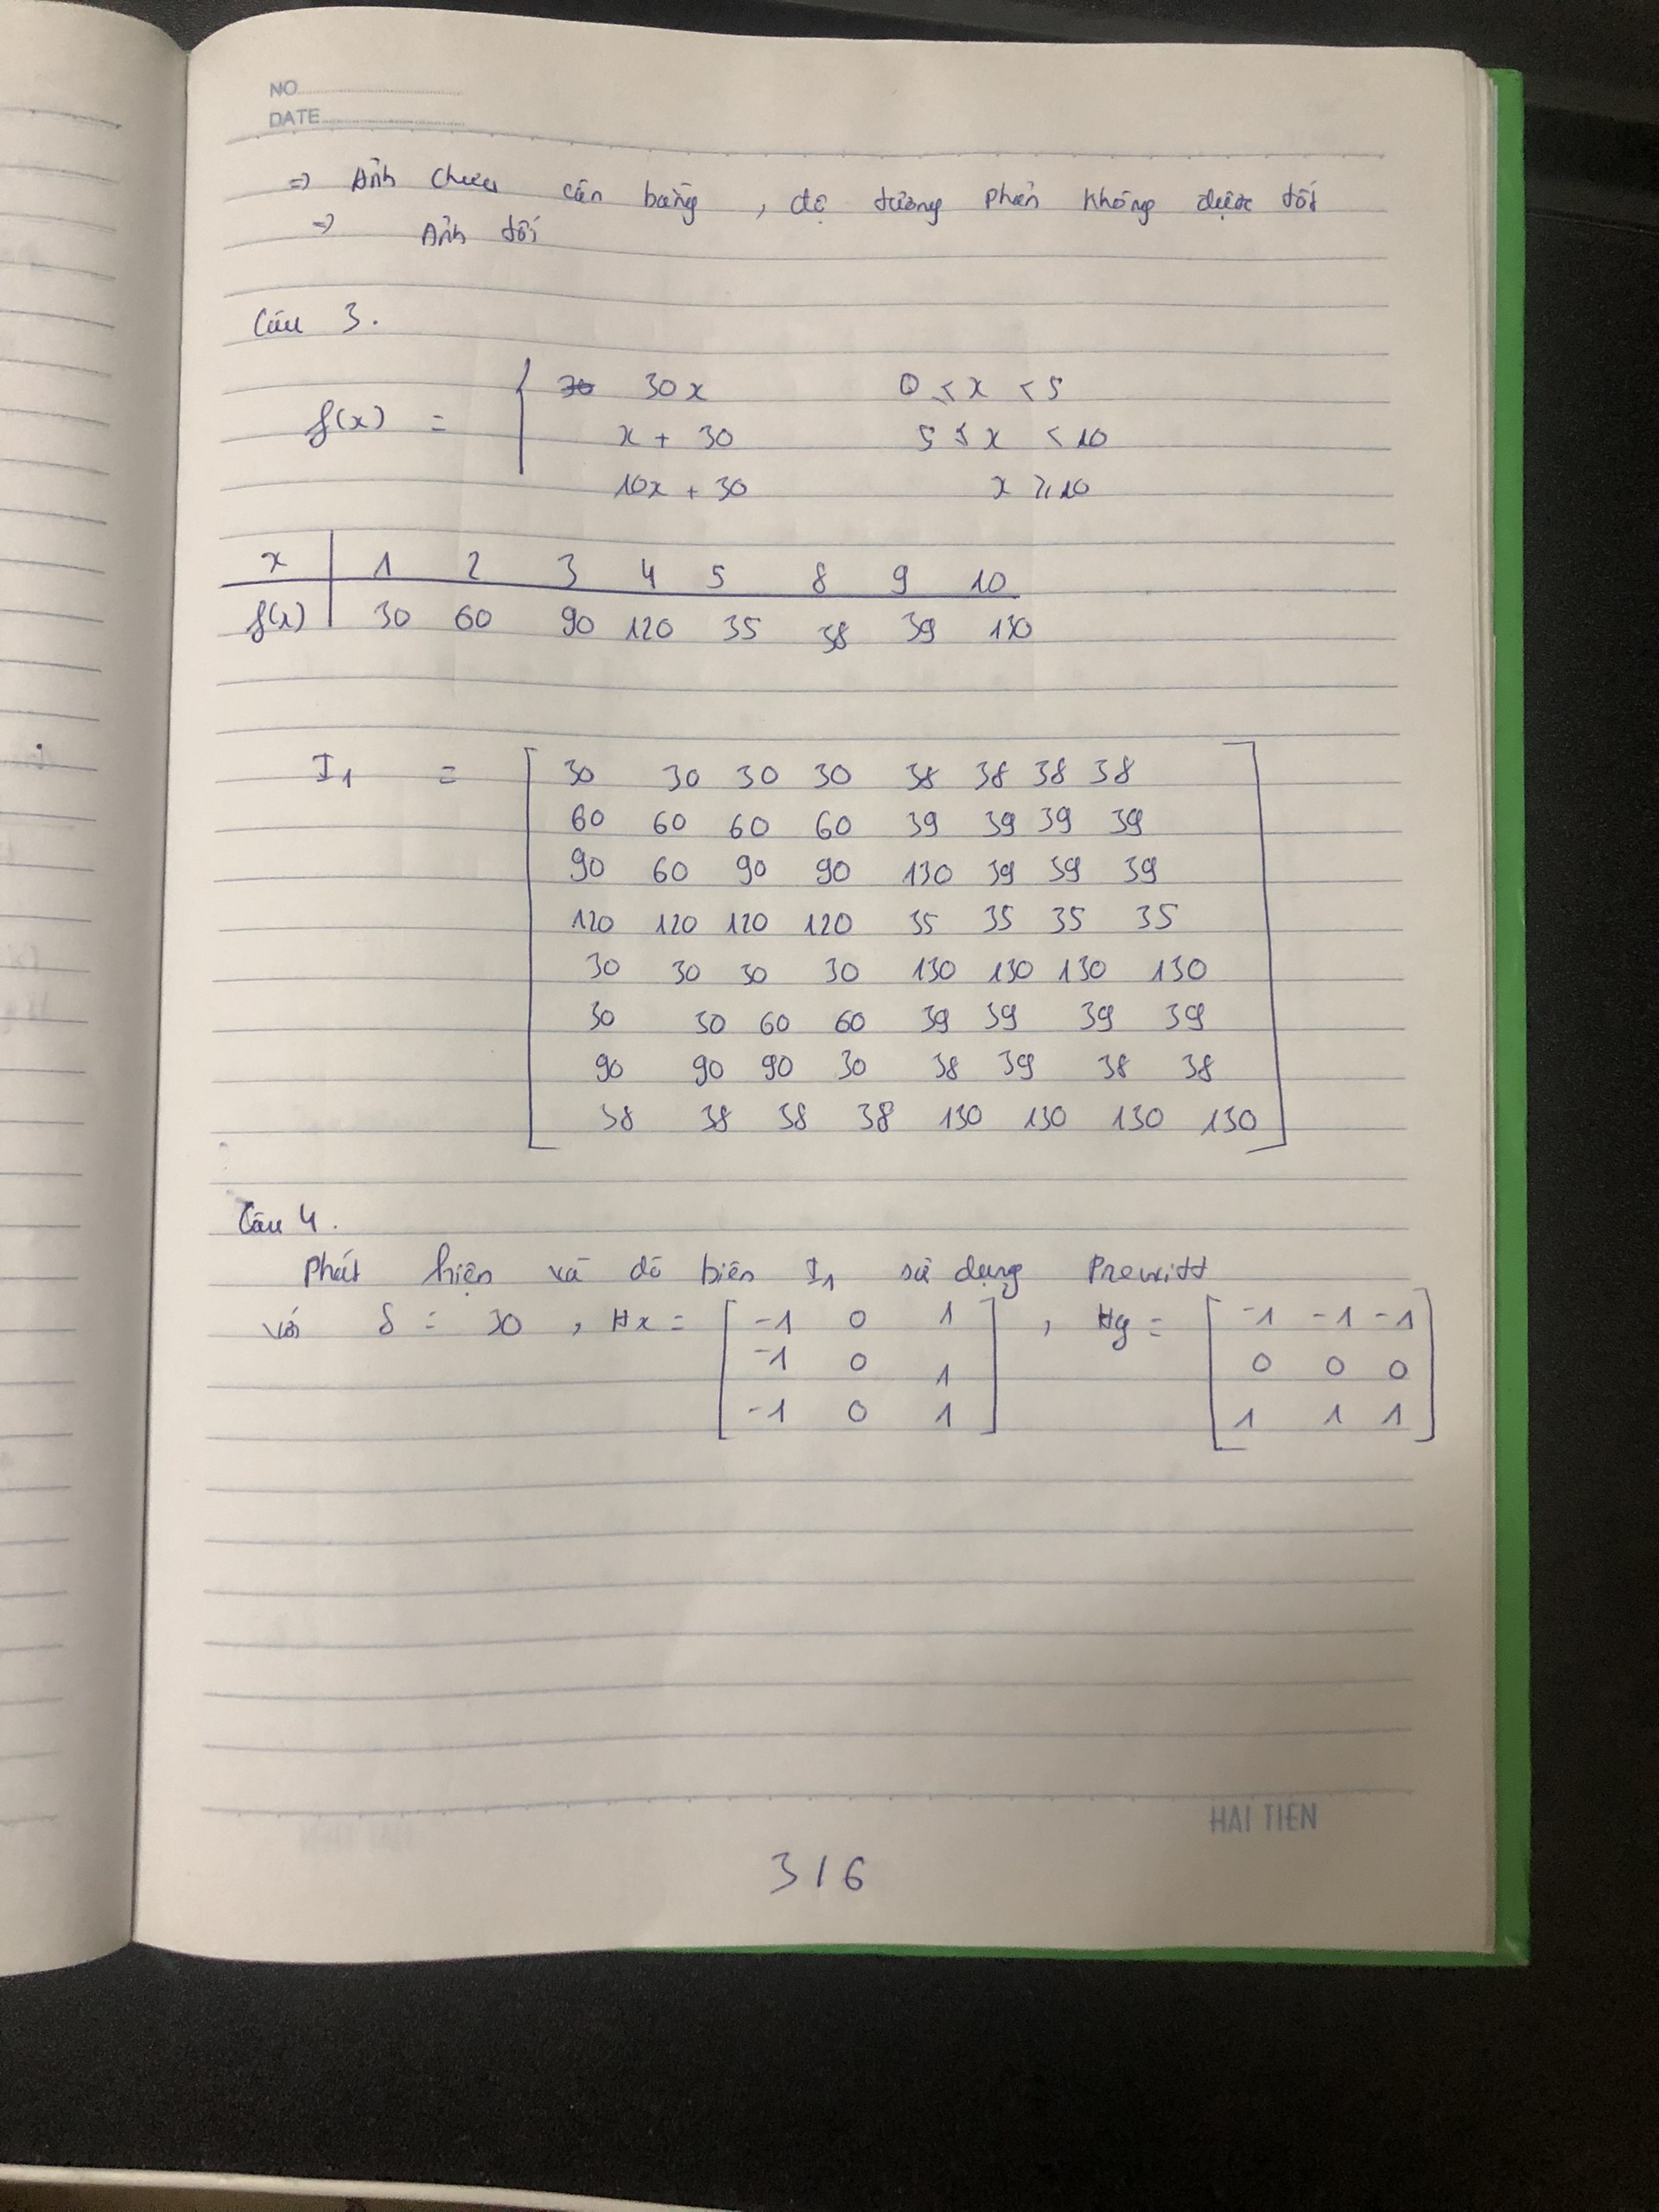 NO
DATE
=> Ảnh chưa cân bằng, độ tương phản không được tốt
=> Ảnh tối
Câu 3.
f(x) = { 30x 0 ≤ x < 5
x + 30 5 ≤ x < 10
10x + 30 x ≥ 10
x | 1 2 3 4 5 8 9 10
f(x) | 30 60 90 120 35 38 39 130
I1 = [ 30 30 30 30 38 38 38 38
60 60 60 60 39 39 39 39
90 60 90 90 130 39 39 39
120 120 120 120 35 35 35 35
30 30 30 30 130 130 130 130
30 30 60 60 39 39 39 39
90 90 90 30 38 39 38 38
38 38 38 38 130 130 130 130 ]
Câu 4.
Phát hiện và dò biên I1 sử dụng Prewitt
với δ = 30, Hx = [ -1 0 1 ], Hy = [ -1 -1 -1 ]
-1 0 1 0 0 0
-1 0 1 1 1 1
HAI TIEN
3/6